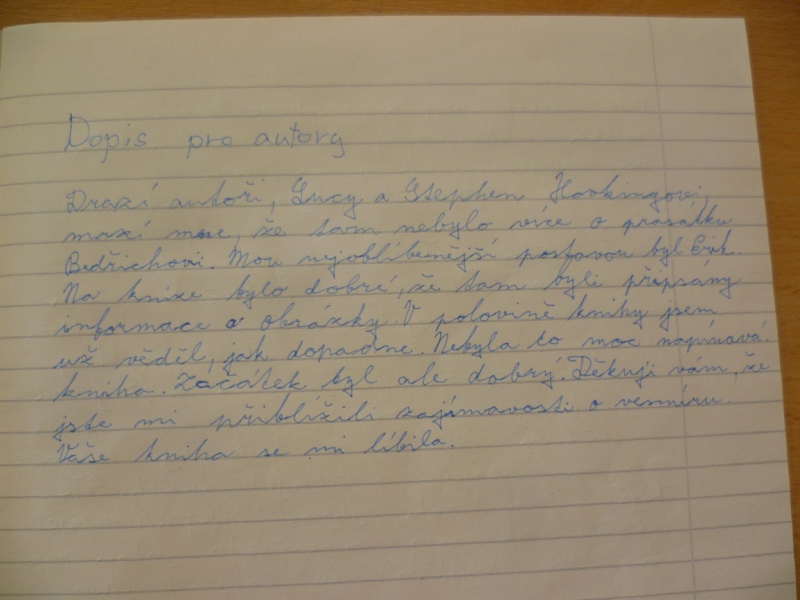 Dopis pro autory
Drazí autoři, Lucy a Stephen Hawkingovi,
mrzí mne, že tam nebylo více o prasátku
Bedřichovi. Mou nejoblíbenější postavou byl Erik.
Na knize bylo dobré, že tam byli připsány
informace a obrázky. V polovině knihy jsem
už věděl, jak dopadne. Nebyla to moc napínavá
kniha. Začátek byl ale dobrý. Děkuji vám, že
jste mi přiblížili zajímavosti o vesmíru.
Vaše kniha se mi líbila.